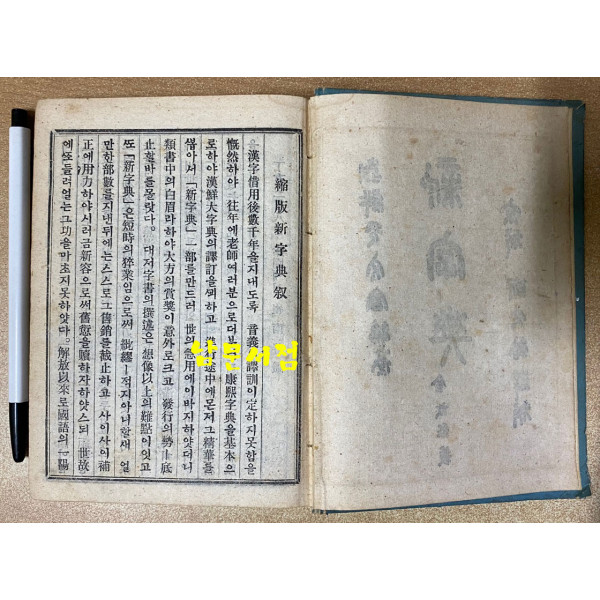 縮版新字典叙
漢字借用後數千年을지내도록 音義의譯訓이定하지못함을
慨然하야 往年에老師여러분으로더부 康熙字典을基本으
로하야漢鮮大字典의譯訂을꾀하고 途中에몬저그精華를
쌔아서「新字典」一部를만드러 世의急用에이바지하얏더니
類書中의白眉라하야大方의賞奬이意外로크고 發行의勢ㅣ底
止할바를몰랏다。 대저字書의撰述은 想像以上의難點이잇고
또「新字典」은短時의猝業임으로써 紕繆ㅣ적지아니할새 얼
만한部數를지낸뒤에는스스로그舊銷를截止하고 사이사의補
正에用力하야시러금新容으로써舊愆을贖하자하얏스되 世故
에또들려얼는그功을마초지못하얏다。解放以來로國語의一陽
남문서점
新字典